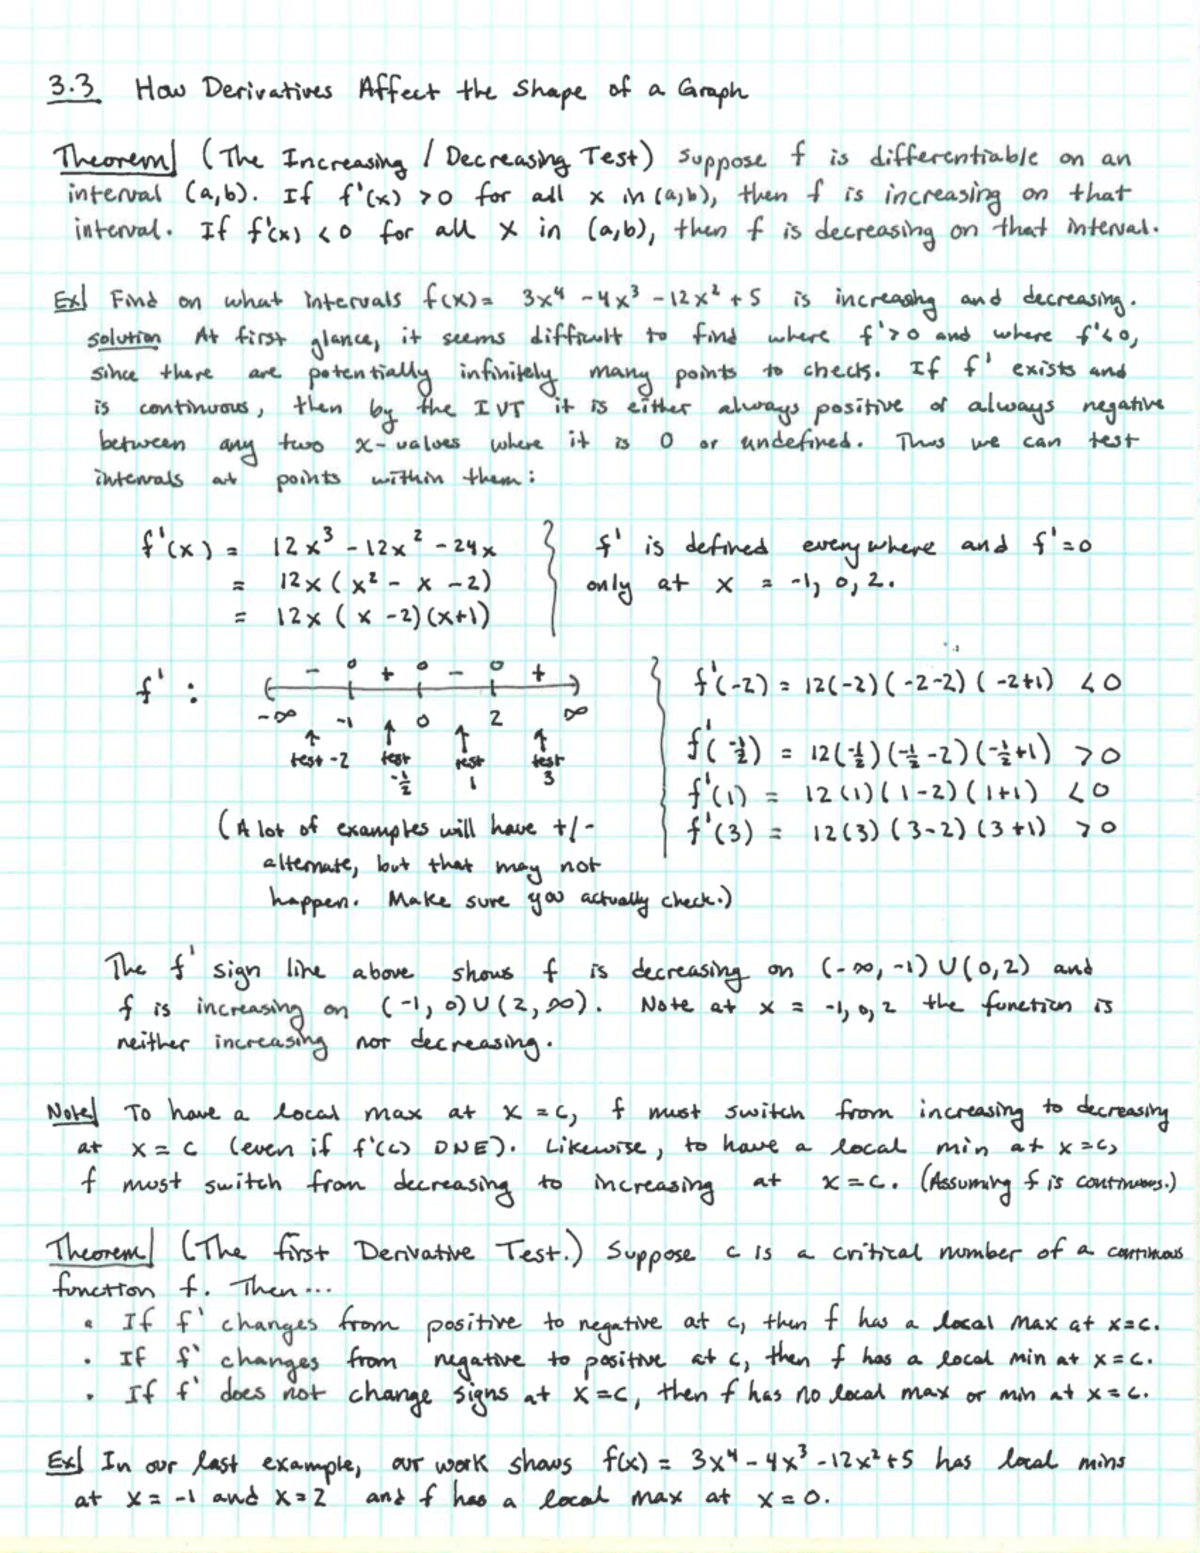 3.3 How Derivatives Affect the Shape of a Graph
Theorem (The Increasing / Decreasing Test) Suppose f is differentiable on an
interval (a,b). If f'(x) > 0 for all x in (a,b), then f is increasing on that
interval. If f'(x) < 0 for all x in (a,b), then f is decreasing on that interval.
Ex Find on what intervals f(x) = 3x⁴ - 4x³ - 12x² + 5 is increasing and decreasing.
solution At first glance, it seems difficult to find where f' > 0 and where f' < 0,
since there are potentially infinitely many points to check. If f' exists and
is continuous, then by the IVT it is either always positive or always negative
between any two x-values where it is 0 or undefined. Thus we can test
intervals at points within them:
f'(x) = 12x³ - 12x² - 24x
= 12x (x² - x - 2)
= 12x (x - 2)(x+1)
f' is defined everywhere and f' = 0
only at x = -1, 0, 2.
f' :
- 0 + 0 - 0 +
-∞ -1 0 2 ∞
test -2 test -1/2 test 1 test 3
(A lot of examples will have +/-
alternate, but that may not
happen. Make sure you actually check.)
f'(-2) = 12(-2)(-2-2)(-2+1) < 0
f'(-1/2) = 12(-1/2)(-1/2-2)(-1/2+1) > 0
f'(1) = 12(1)(1-2)(1+1) < 0
f'(3) = 12(3)(3-2)(3+1) > 0
The f' sign line above shows f is decreasing on (-∞, -1) U (0,2) and
f is increasing on (-1, 0) U (2, ∞). Note at x = -1, 0, 2 the function is
neither increasing nor decreasing.
Note To have a local max at x = c, f must switch from increasing to decreasing
at x = c (even if f'(c) DNE). Likewise, to have a local min at x = c,
f must switch from decreasing to increasing at x = c. (Assuming f is continuous.)
Theorem (The first Derivative Test.) Suppose c is a critical number of a continuous
function f. Then...
• If f' changes from positive to negative at c, then f has a local max at x=c.
• If f' changes from negative to positive at c, then f has a local min at x=c.
• If f' does not change signs at x=c, then f has no local max or min at x=c.
Ex In our last example, our work shows f(x) = 3x⁴ - 4x³ - 12x² + 5 has local mins
at x = -1 and x = 2 and f has a local max at x = 0.